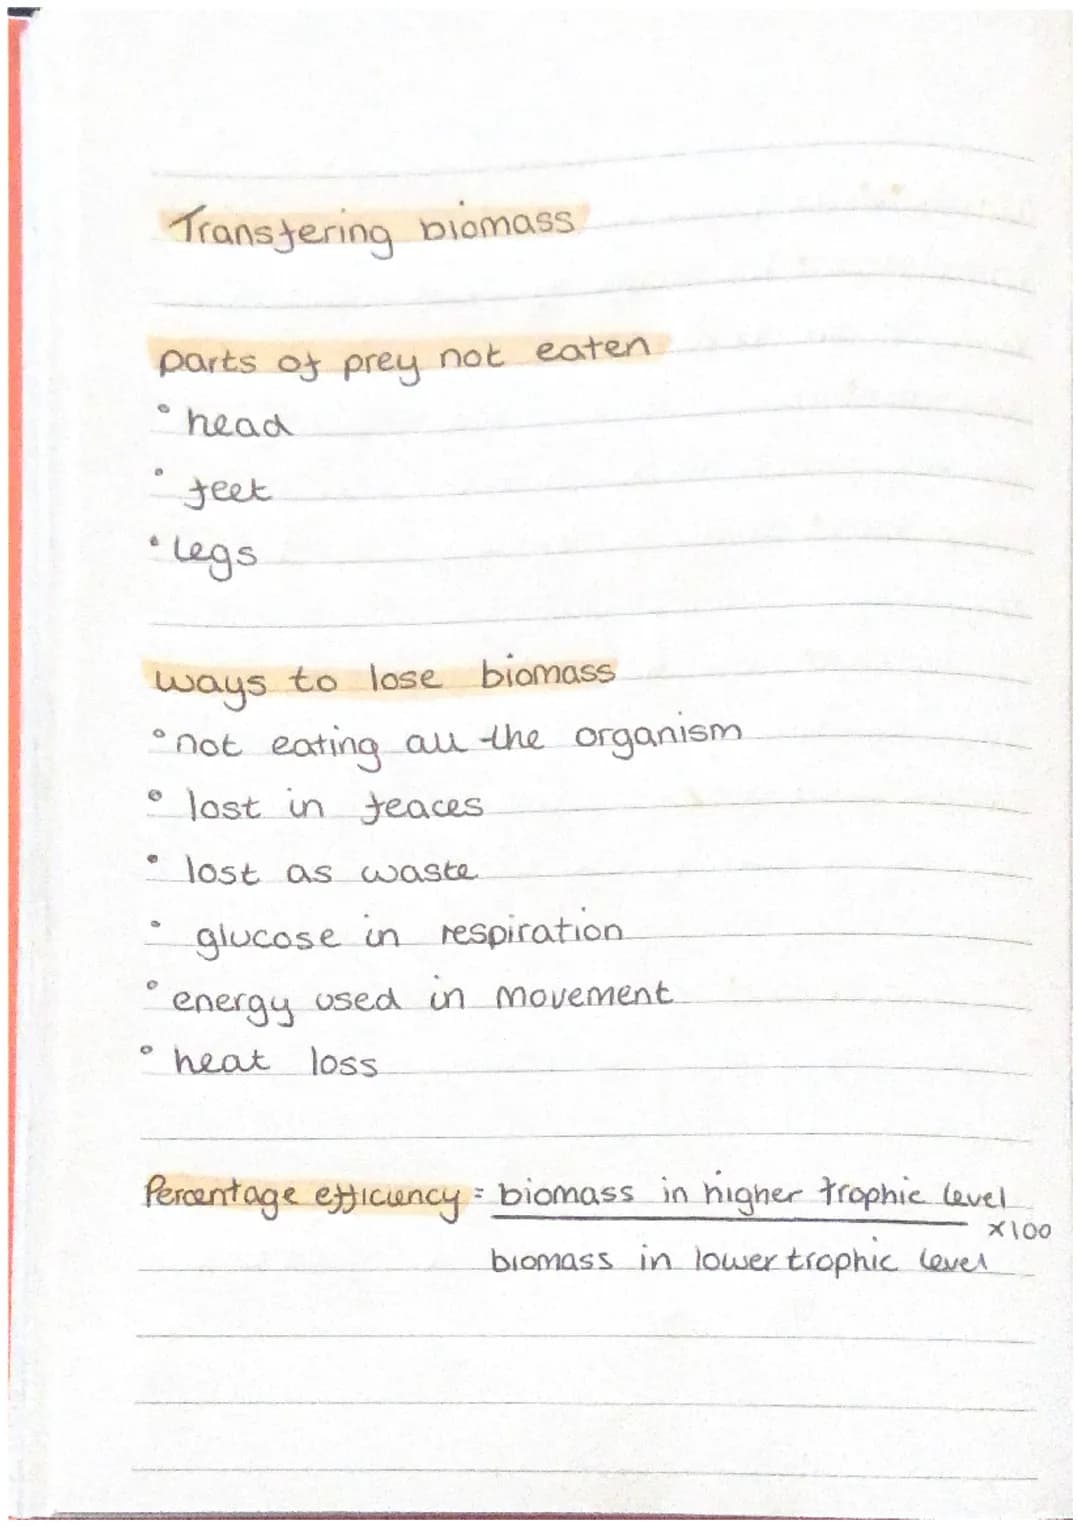 Transfering biomass
parts of prey not eaten
• head
• feet
• legs
ways to lose biomass
• not eating all the organism
• lost in feaces
• lost as waste
• glucose in respiration
• energy used in movement
• heat loss
Percentage efficiency = biomass in higher trophic level
x100
biomass in lower trophic level